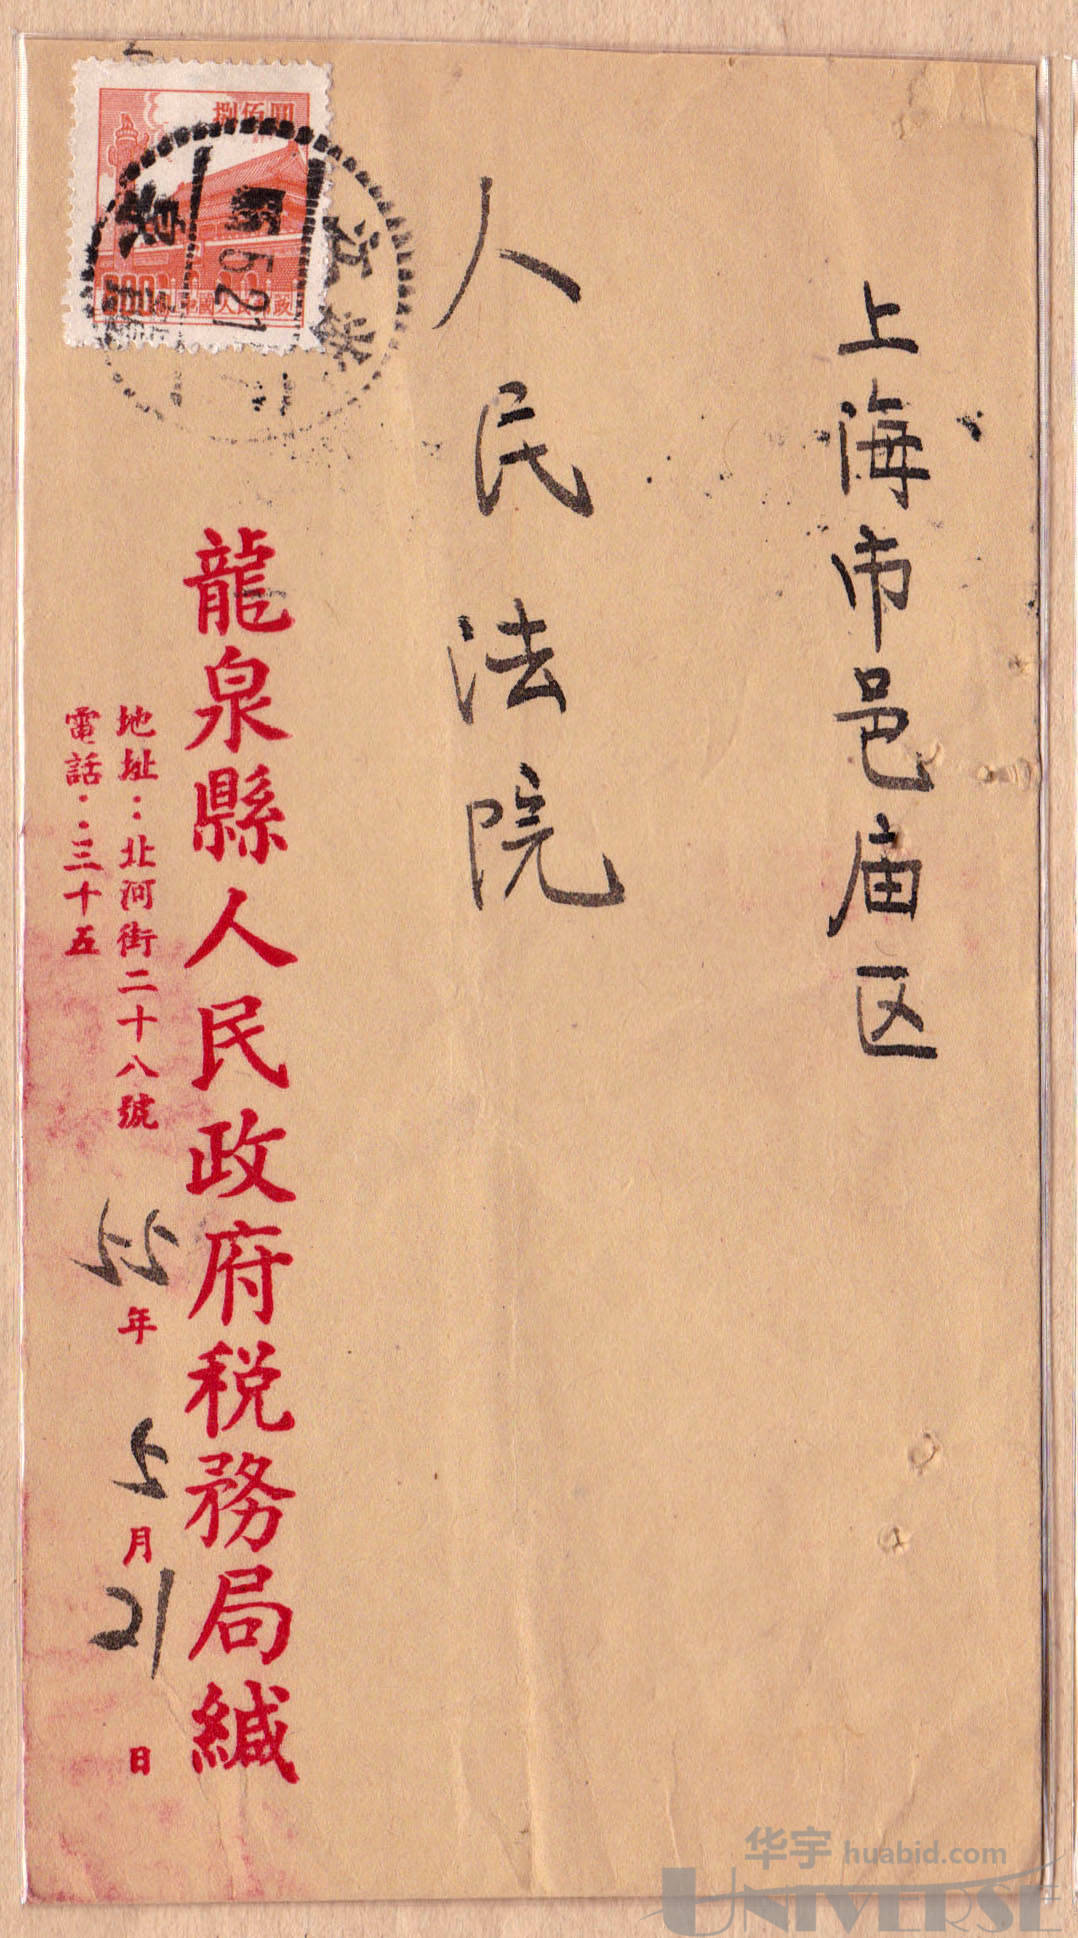 上海市邑庙区
人民法院
捌佰圓
800
5.21
浙江
龍泉縣人民政府税務局緘
地址：北河街二十八號
電話：三十五
55年5月21日
华宇 huabid.com
UNIVERSE